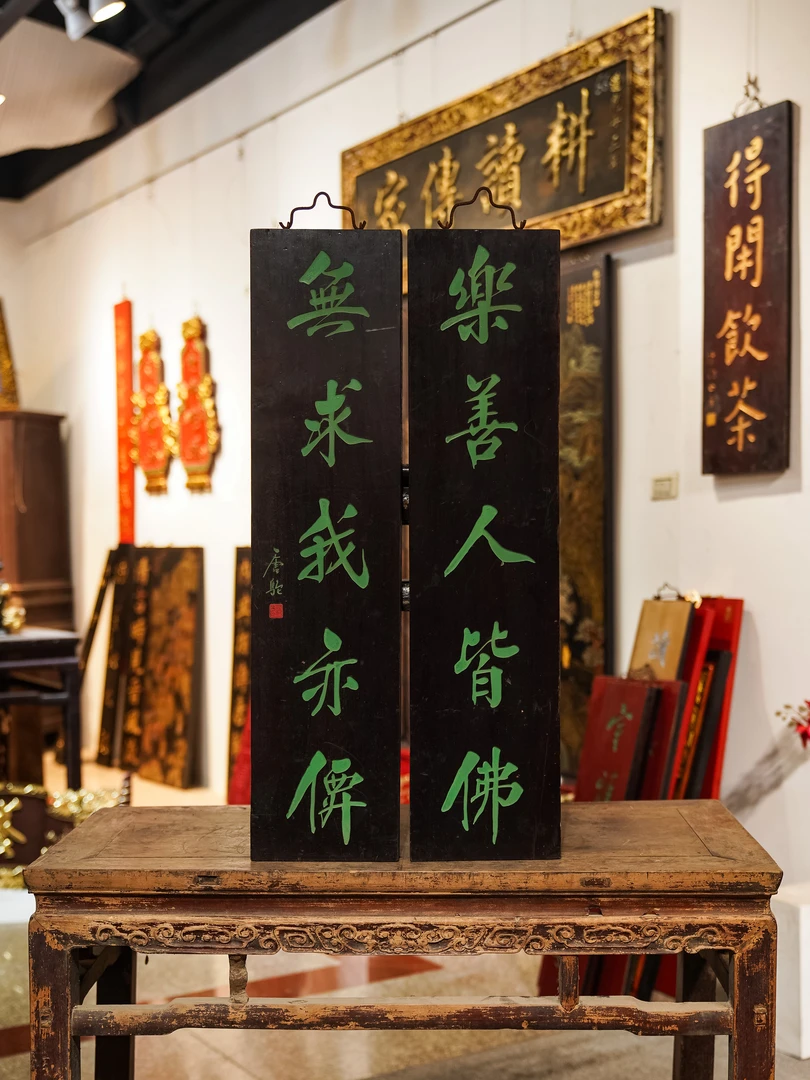 樂善人皆佛
無求我亦僊
唐駝
耕讀傳家
得閒飲茶